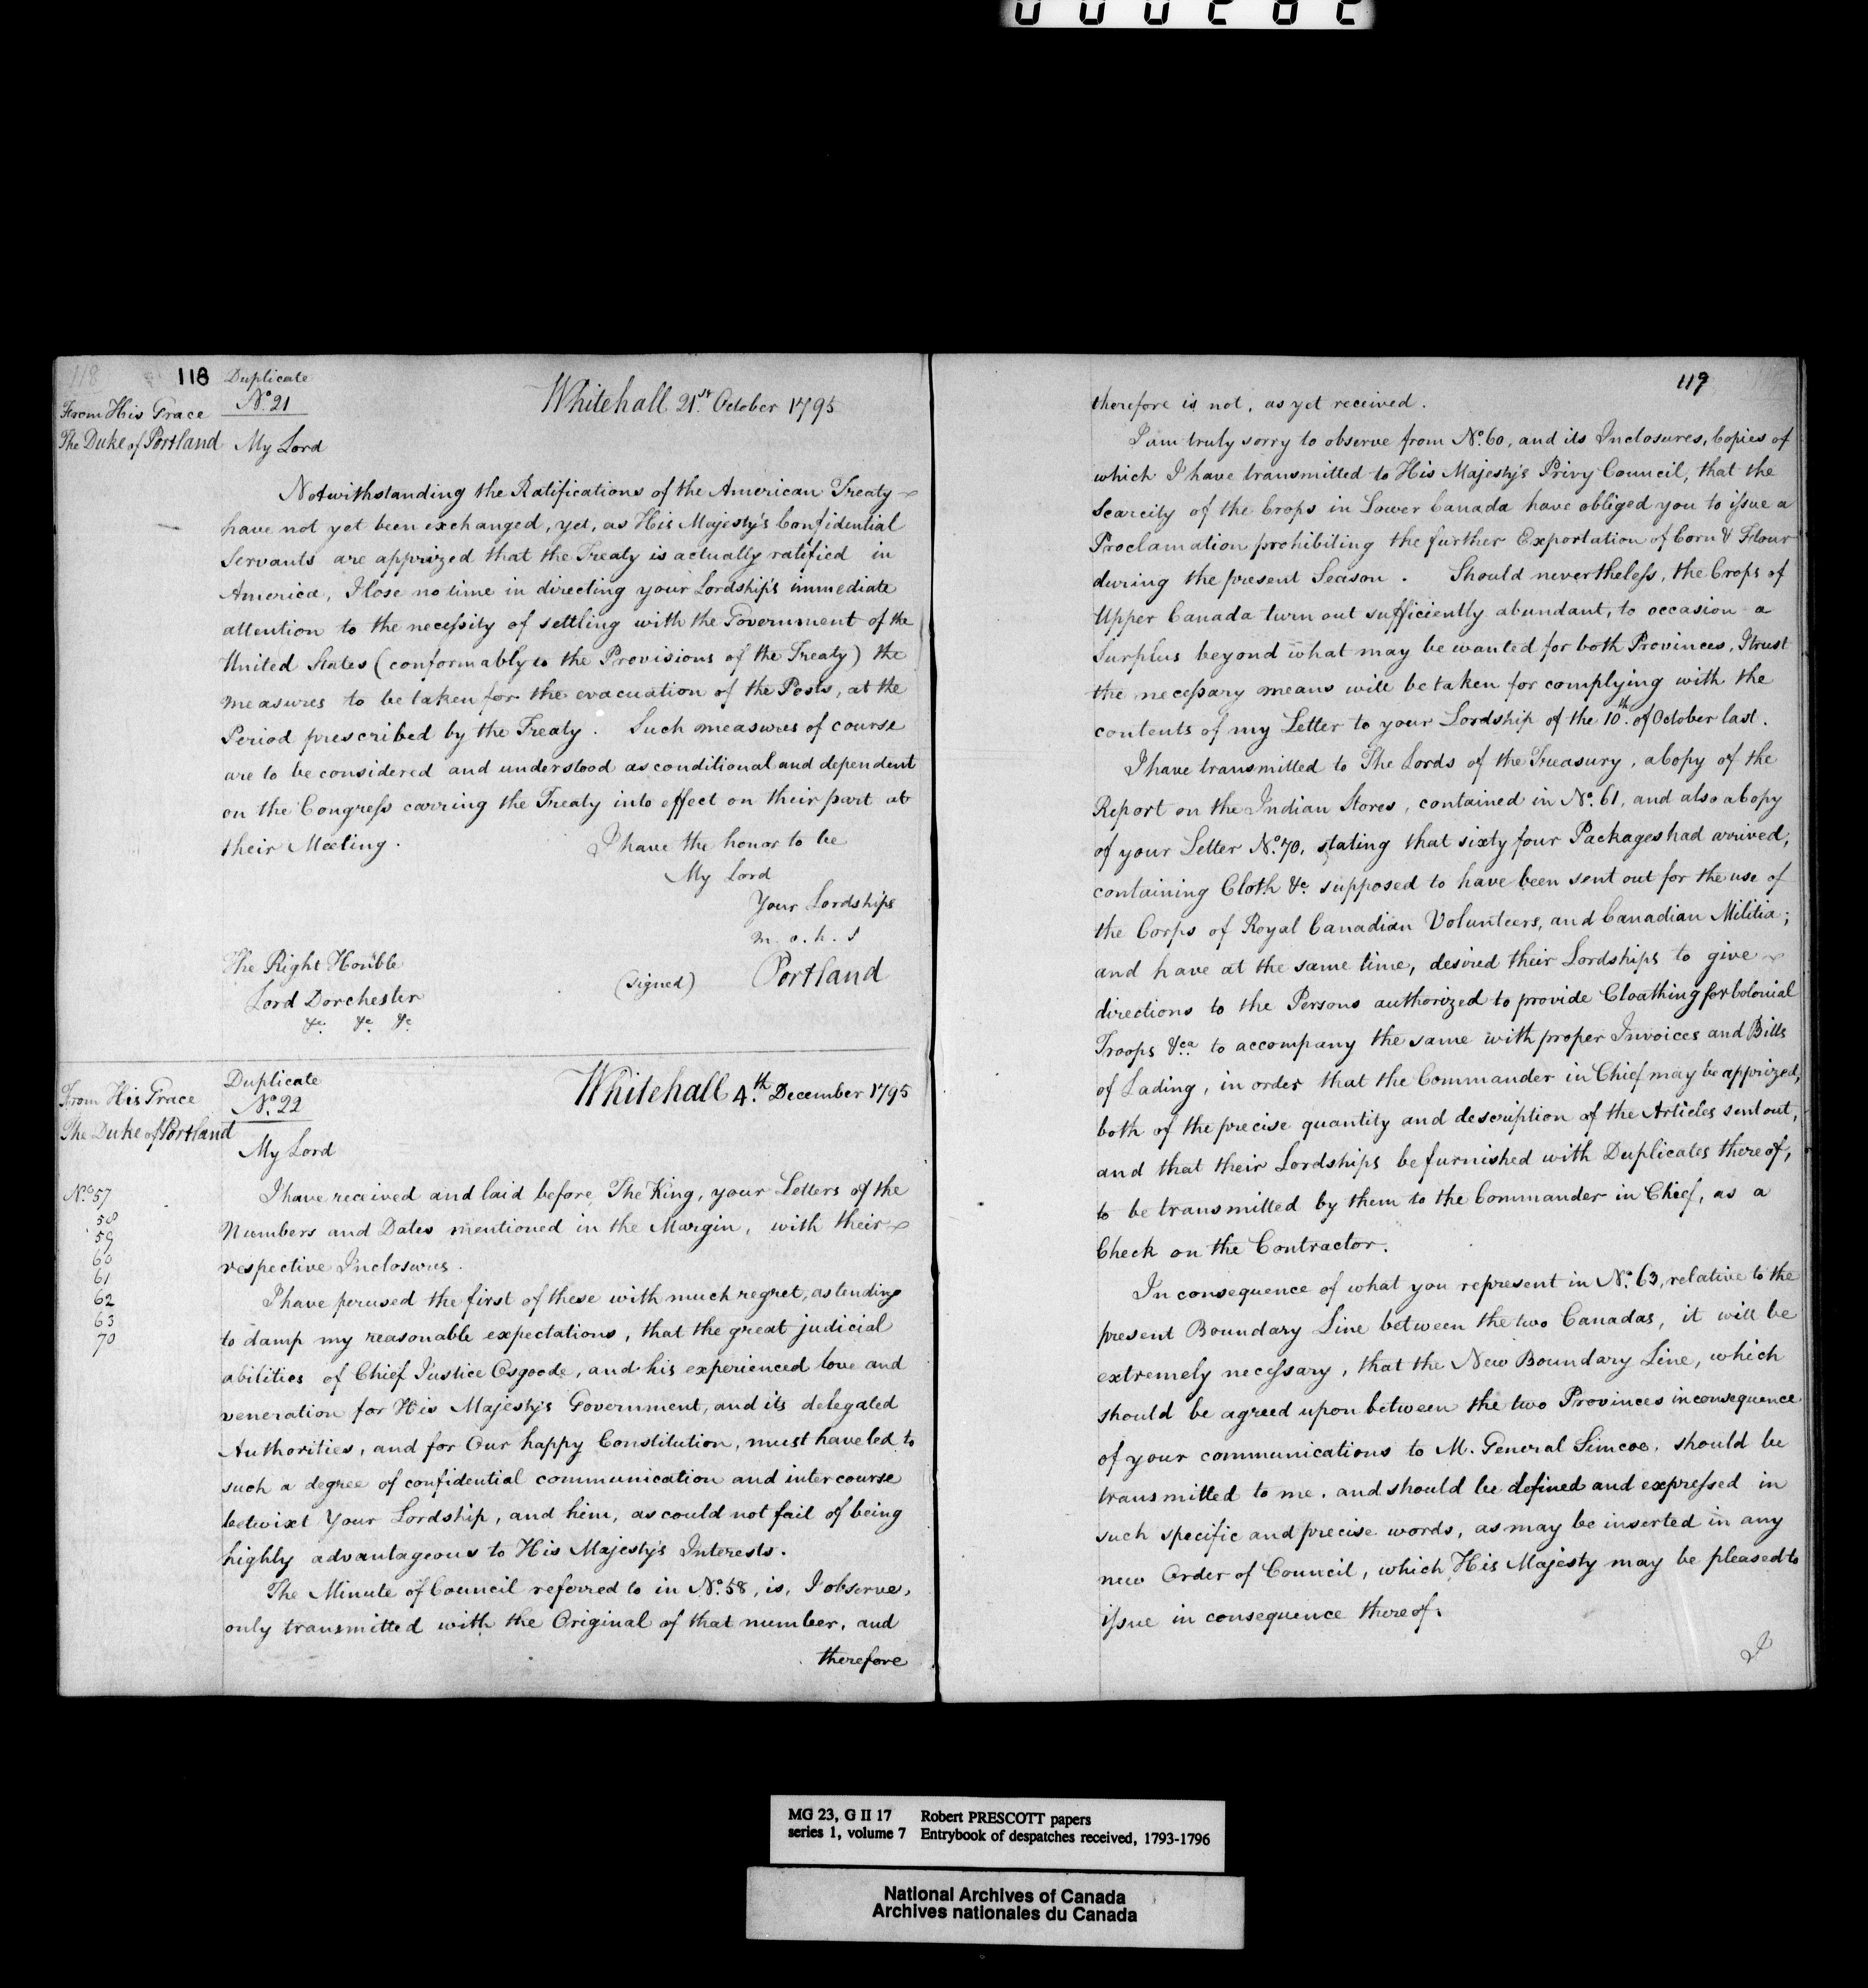 000282
118
118 Duplicate
No. 21
From His Grace
The Duke of Portland
Whitehall 21st October 1795
My Lord
Notwithstanding the Ratifications of the American Treaty
have not yet been exchanged, yet, as His Majesty's Confidential
Servants are apprized that the Treaty is actually ratified in
America, I lose no time in directing your Lordship's immediate
attention to the necessity of settling with the Government of the
United States (conformably to the Provisions of the Treaty) the
measures to be taken for the evacuation of the Posts, at the
Period prescribed by the Treaty. Such measures of course
are to be considered and understood as conditional and dependent
on the Congress carring the Treaty into effect on their part at
their Meeting.
I have the honor to be
My Lord
Your Lordships
m. o. h. S
(signed) Portland
The Right Honble
Lord Dorchester
&c. &c. &c.
From His Grace
The Duke of Portland
Duplicate
No. 22
Whitehall 4th. December 1795
My Lord
No. 57
58
59
60
61
62
63
70
I have received and laid before The King, your Letters of the
Numbers and Dates mentioned in the Margin, with their
respective Inclosures.
I have perused the first of these with much regret, as tending
to damp my reasonable expectations, that the great judicial
abilities of Chief Justice Osgoode, and his experienced love and
veneration for His Majesty's Government, and its delegated
Authorities, and for Our happy Constitution, must have led to
such a degree of confidential communication and intercourse
betwixt Your Lordship, and him, as could not fail of being
highly advantageous to His Majesty's Interests.
The Minute of Council referred to in No. 58, is, I observe,
only transmitted with the Original of that number, and
therefore
119
therefore is not, as yet received.
I am truly sorry to observe from No. 60, and its Inclosures, Copies of
which I have transmitted to His Majesty's Privy Council, that the
Scarcity of the Crops in Lower Canada have obliged you to issue a
Proclamation prohibiting the further Exportation of Corn & Flour
during the present Season. Should nevertheless, the Crops of
Upper Canada turn out sufficiently abundant, to occasion a
Surplus beyond what may be wanted for both Provinces, I trust
the necessary means will be taken for complying with the
contents of my Letter to your Lordship of the 10th. of October last.
I have transmitted to The Lords of the Treasury, a Copy of the
Report on the Indian Stores, contained in No. 61, and also a Copy
of your Letter No. 70, stating that sixty four Packages had arrived,
containing Cloth &c. supposed to have been sent out for the use of
the Corps of Royal Canadian Volunteers, and Canadian Militia;
and have at the same time, desired their Lordships to give
directions to the Persons authorized to provide Cloathing for Colonial
Troops &ca. to accompany the same with proper Invoices and Bills
of Lading, in order that the Commander in Chief may be apprized,
both of the precise quantity and description of the Articles sent out,
and that their Lordships be furnished with Duplicates thereof,
to be transmitted by them to the Commander in Chief, as a
Check on the Contractor.
In consequence of what you represent in No. 63, relative to the
present Boundary Line between the two Canadas, it will be
extremely necessary, that the New Boundary Line, which
should be agreed upon between the two Provinces in consequence
of your communications to M. General Simcoe, should be
transmitted to me. and should be defined and expressed in
such specific and precise words, as may be inserted in any
new Order of Council, which His Majesty may be pleased to
issue in consequence thereof.
I
MG 23, G II 17 Robert PRESCOTT papers
series 1, volume 7 Entrybook of despatches received, 1793-1796
National Archives of Canada
Archives nationales du Canada